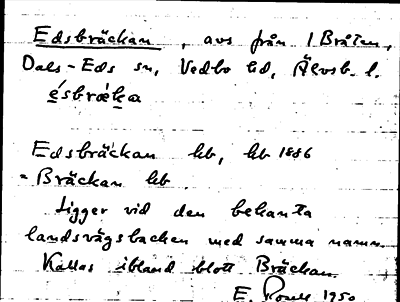 Edsbräckan, avs från 1 Bråten,
Dals-Eds sn, Vedbo hd, Älvsb. l.
ésbrǽka
Edsbräckan hb, hb 1886
= Bräckan hb
Ligger vid den bekanta
landsvägsbacken med samma namn.
Kallas ibland blott Bräckan.
E. 1950